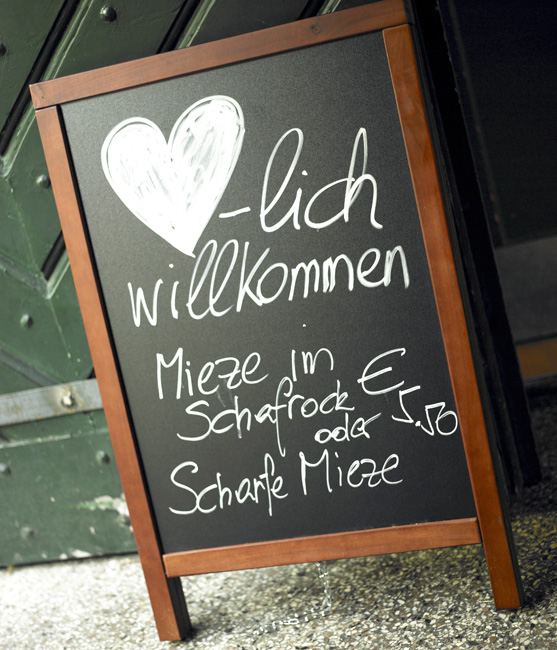 -lich
willkommen
Mieze im
Schafrock € 5.50
oder
Scharfe Mieze